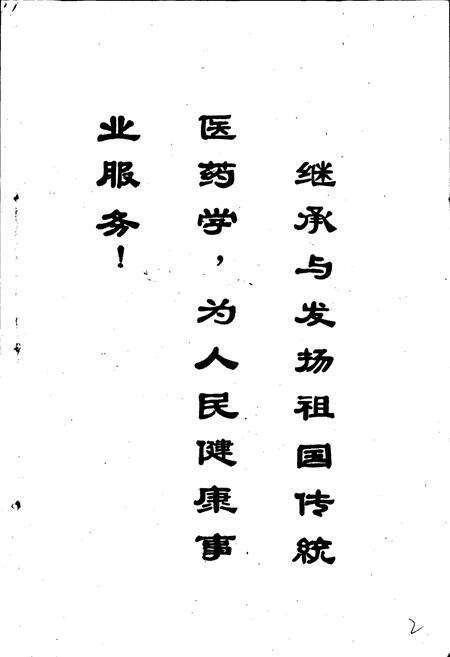 继承与发扬祖国传統
医药学，为人民健康事
业服务！
2